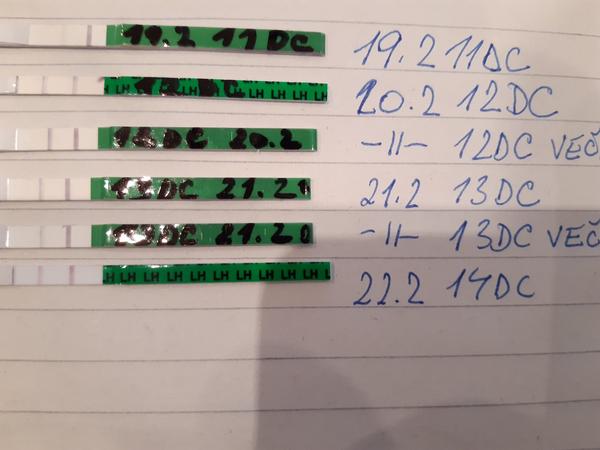 19.2 11DC 19.2 11DC
LH LH LH LH LH 20.2 12DC
12DC 20.2 -11- 12DC VEČ
13DC 21.2 21.2 13DC
13DC 21.2 -11- 13DC VEČ
LH LH LH LH LH LH LH LH LH LH 22.2 14DC